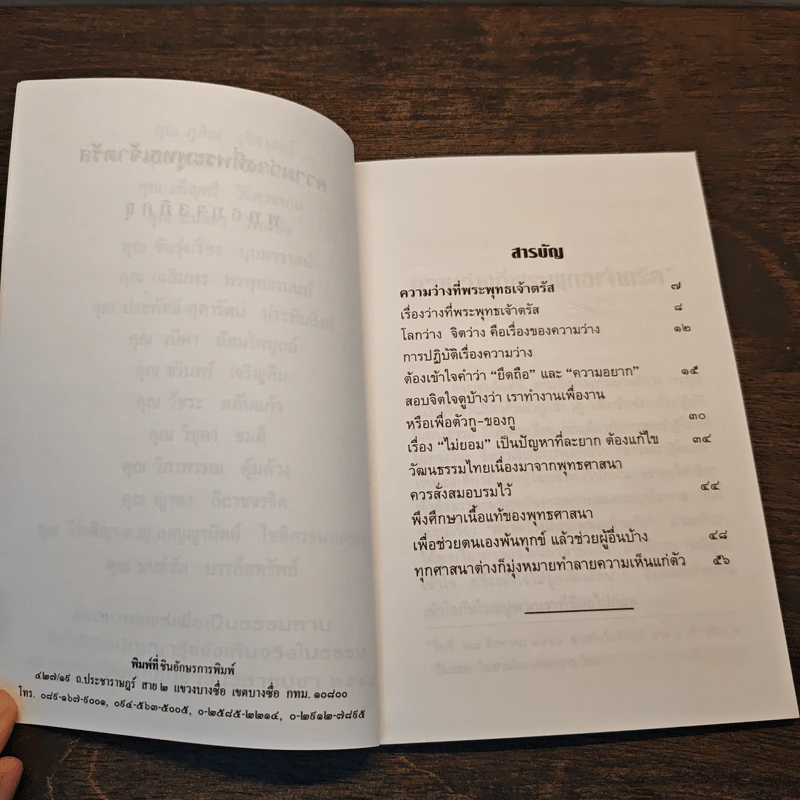 พิมพ์ที่ ชินอักษรการพิมพ์
๔๒๗/๑๙ ถ.ประชาราษฎร์ สาย ๒ แขวงบางซื่อ เขตบางซื่อ กทม. ๑๐๘๐๐
โทร. ๐๘๙-๑๖๗-๙๐๐๑, ๐๙๔-๕๖๓-๕๐๐๕, ๐-๒๕๘๕-๒๒๑๔, ๐-๒๙๑๒-๗๘๙๕
สารบัญ
ความว่างที่พระพุทธเจ้าตรัส ๗
เรื่องว่างที่พระพุทธเจ้าตรัส ๘
โลกว่าง จิตว่าง คือเรื่องของความว่าง ๑๒
การปฏิบัติเรื่องความว่าง
ต้องเข้าใจคำว่า “ยึดถือ” และ “ความอยาก” ๑๕
สอบจิตใจดูบ้างว่า เราทำงานเพื่องาน
หรือเพื่อตัวกู-ของกู ๓๐
เรื่อง “ไม่ยอม” เป็นปัญหาที่ละยาก ต้องแก้ไข ๓๔
วัฒนธรรมไทยเนื่องมาจากพุทธศาสนา
ควรสั่งสมอบรมไว้ ๔๔
พึงศึกษาเนื้อแท้ของพุทธศาสนา
เพื่อช่วยตนเองพ้นทุกข์ แล้วช่วยผู้อื่นบ้าง ๔๘
ทุกศาสนาต่างก็มุ่งหมายทำลายความเห็นแก่ตัว ๕๖